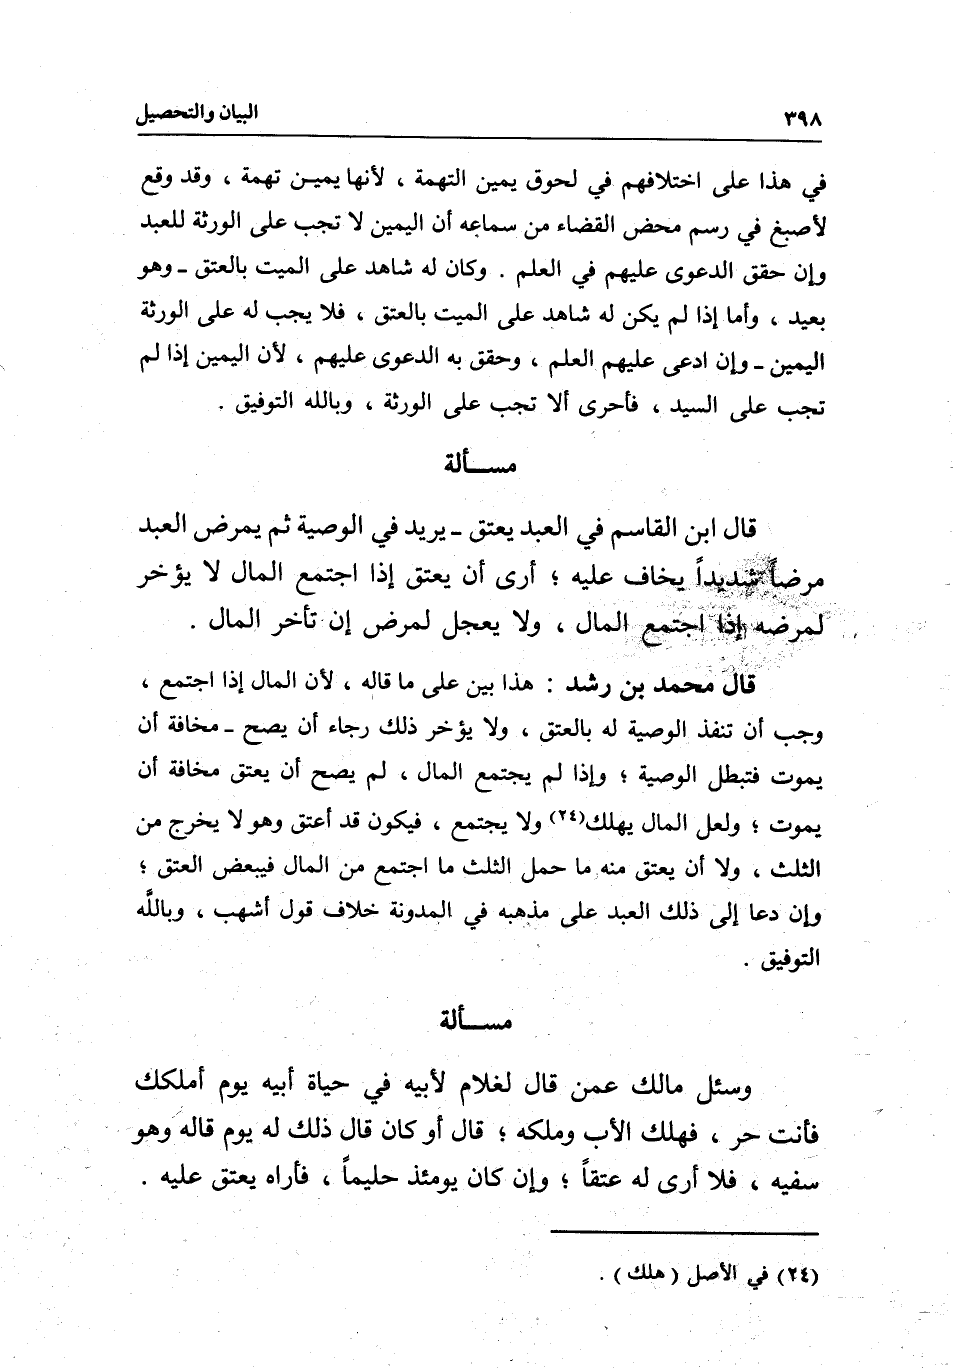 ٣٩٨
البيان والتحصيل
في هذا على اختلافهم في لحوق يمين التهمة ، لأنها يميـن تهمة ، وقد وقع
لأصبغ في رسم محض القضاء من سماعه أن اليمين لا تجب على الورثة للعبد
وإن حقق الدعوى عليهم في العلم . وكان له شاهد على الميت بالعتق ـ وهو
بعيد ، وأما إذا لم يكن له شاهد على الميت بالعتق ، فلا يجب له على الورثة
اليمين ـ وإن ادعى عليهم العلم ، وحقق به الدعوى عليهم ، لأن اليمين إذا لم
تجب على السيد ، فأحرى ألا تجب على الورثة ، وبالله التوفيق .
مســـألة
قال ابن القاسم في العبد يعتق ـ يريد في الوصية ثم يمرض العبد
مرضاً شديداً يخاف عليه ؛ أرى أن يعتق إذا اجتمع المال لا يؤخر
لمرضه إذا اجتمع المال ، ولا يعجل لمرض إن تأخر المال .
قال محمد بن رشد : هذا بين على ما قاله ، لأن المال إذا اجتمع ،
وجب أن تنفذ الوصية له بالعتق ، ولا يؤخر ذلك رجاء أن يصح ـ مخافة أن
يموت فتبطل الوصية ؛ وإذا لم يجتمع المال ، لم يصح أن يعتق مخافة أن
يموت ؛ ولعل المال يهلك(٢٤) ولا يجتمع ، فيكون قد أعتق وهو لا يخرج من
الثلث ، ولا أن يعتق منه ما حمل الثلث ما اجتمع من المال فيبعض العتق ؛
وإن دعا إلى ذلك العبد على مذهبه في المدونة خلاف قول أشهب ، وباللَّه
التوفيق .
مســـألة
وسئل مالك عمن قال لغلام لأبيه في حياة أبيه يوم أملكك
فأنت حر ، فهلك الأب وملكه ؛ قال أو كان قال ذلك له يوم قاله وهو
سفيه ، فلا أرى له عتقاً ؛ وإن كان يومئذ حليماً ، فأراه يعتق عليه .
(٢٤) في الأصل (هلك) .